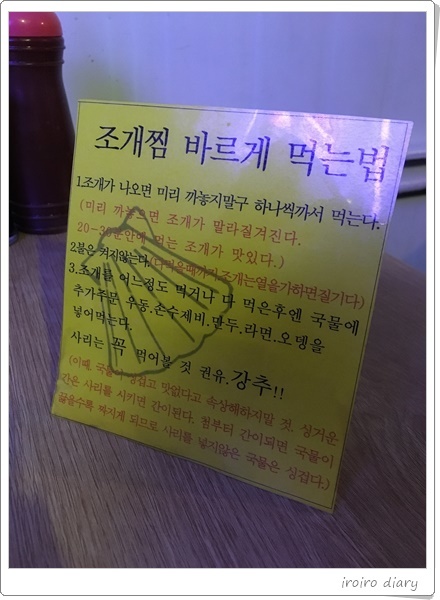 조개찜 바르게 먹는법
1조개가 나오면 미리 까놓지말구 하나씩까서 먹는다.
(미리 까놓으면 조개가 말라질겨진다.
20-30분안에 먹는 조개가 맛있다.)
2불은 켜지않는다(다먹을때까지조개는열을가하면질기다)
3.조개를 어느정도 먹거나 다 먹은후엔 국물에
추가주문 우동.손수제비.만두.라면.오뎅을
넣어먹는다.
사리는 꼭 먹어볼 것 권유.강추!!
(이때 국물이 싱겁고 맛없다고 속상해하지말 것. 싱거운
간은 사리를 시키면 간이된다. 첨부터 간이되면 국물이
끓을수록 짜지게 되므로 사리를 넣지않은 국물은 싱겁다.)
iroiro diary